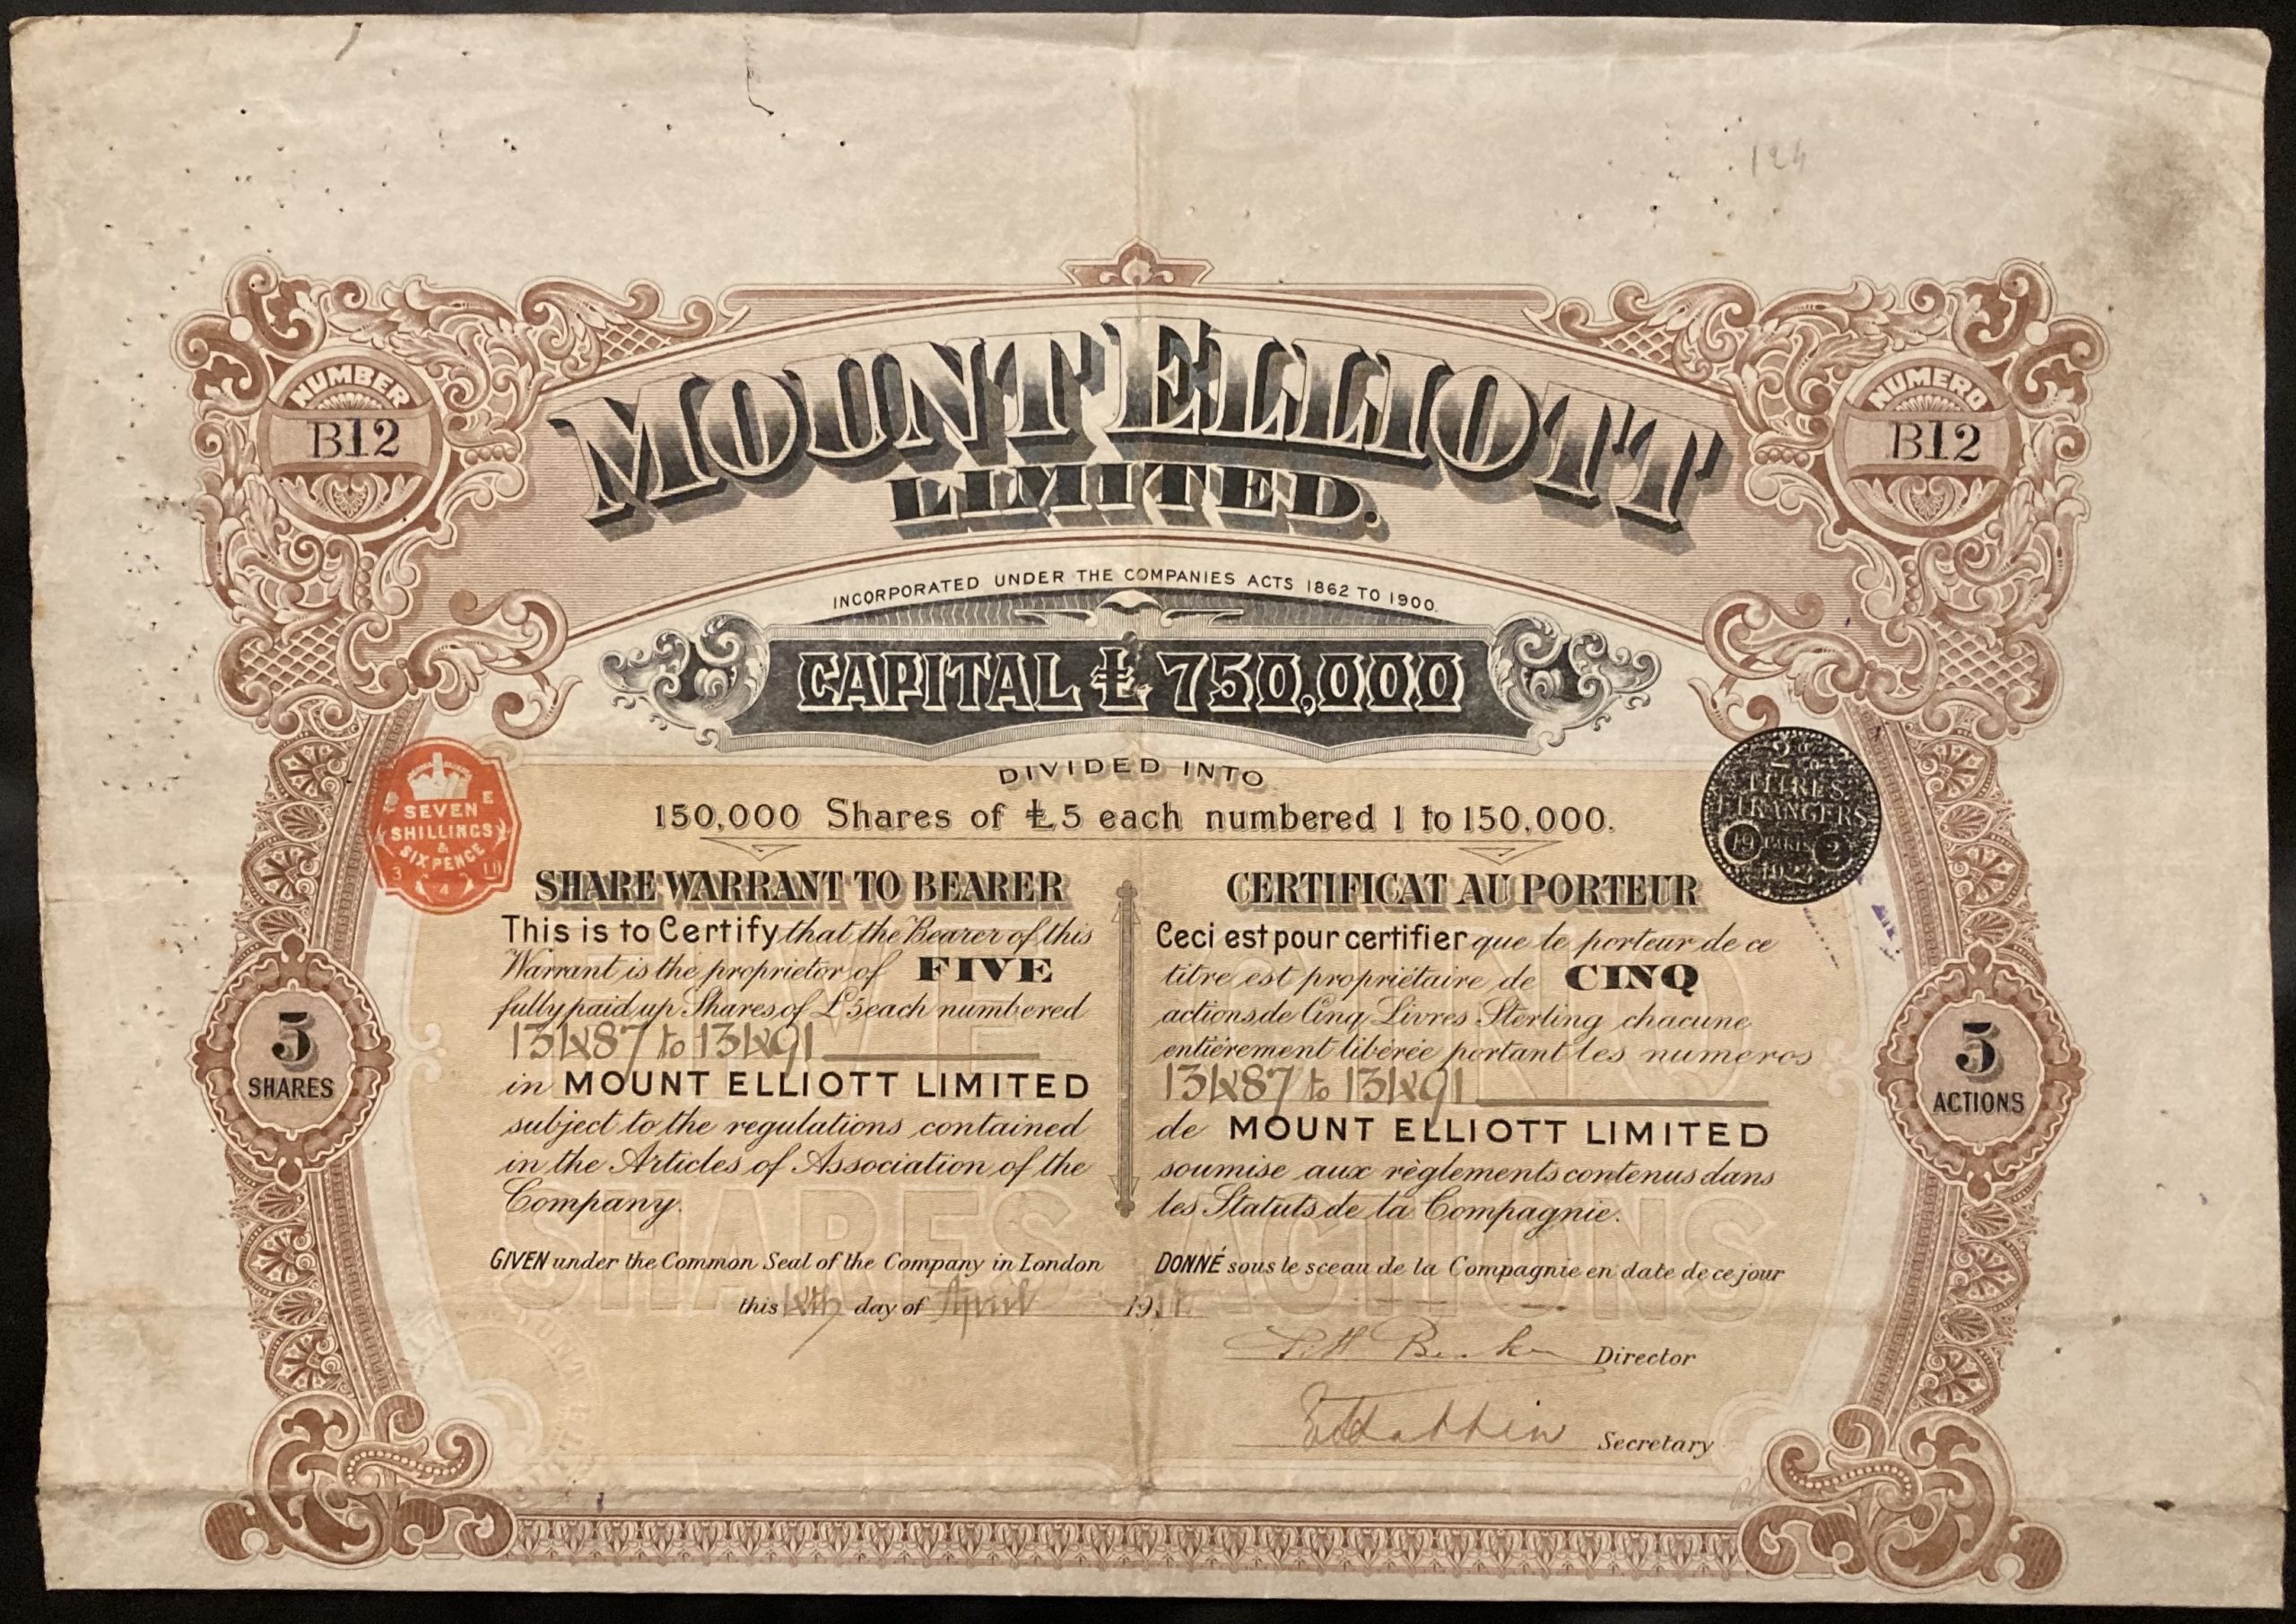 124
NUMBER
B12
NUMERO
B12
MOUNT ELLIOTT
LIMITED.
INCORPORATED UNDER THE COMPANIES ACTS 1862 TO 1900.
CAPITAL £ 750,000
DIVIDED INTO
150,000 Shares of £5 each numbered 1 to 150,000.
SEVEN
SHILLINGS
&
SIXPENCE
3 4 11
TITRES
ETRANGERS
19 PARIS 2
SHARE WARRANT TO BEARER
This is to Certify that the Bearer of this
Warrant is the proprietor of FIVE
fully paid up Shares of £5 each numbered
131487 to 131491
in MOUNT ELLIOTT LIMITED
subject to the regulations contained
in the Articles of Association of the
Company.
GIVEN under the Common Seal of the Company in London
this day of April 1911
CERTIFICAT AU PORTEUR
Ceci est pour certifier que le porteur de ce
titre est propriétaire de CINQ
actions de Cinq Livres Sterling chacune
entièrement libérée portant les numeros
131487 to 131491
de MOUNT ELLIOTT LIMITED
soumise aux règlements contenus dans
les Statuts de la Compagnie.
DONNÉ sous le sceau de la Compagnie en date de ce jour
Director
Secretary
5
SHARES
5
ACTIONS
FIVE
SHARES
CINQ
ACTIONS